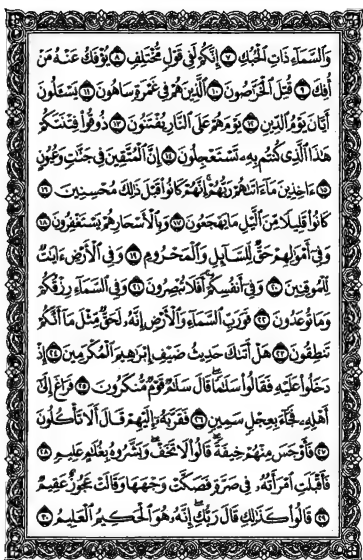 وَالسَّمَاءِ ذَاتِ الْحُبُكِ ٧ إِنَّكُمْ لَفِي قَوْلٍ مُّخْتَلِفٍ ٨ يُؤْفَكُ عَنْهُ مَنْ
أُفِكَ ٩ قُتِلَ الْخَرَّاصُونَ ١٠ الَّذِينَ هُمْ فِي غَمْرَةٍ سَاهُونَ ١١ يَسْـَٔلُونَ
أَيَّانَ يَوْمُ الدِّينِ ١٢ يَوْمَ هُمْ عَلَى النَّارِ يُفْتَنُونَ ١٣ ذُوقُوا فِتْنَتَكُمْ
هَٰذَا الَّذِي كُنتُم بِهِۦ تَسْتَعْجِلُونَ ١٤ إِنَّ الْمُتَّقِينَ فِي جَنَّٰتٍ وَعُيُونٍ
١٥ ءَاخِذِينَ مَا ءَاتَىٰهُمْ رَبُّهُمْ إِنَّهُمْ كَانُوا قَبْلَ ذَٰلِكَ مُحْسِنِينَ ١٦
كَانُوا قَلِيلًا مِّنَ الَّيْلِ مَا يَهْجَعُونَ ١٧ وَبِالْأَسْحَارِ هُمْ يَسْتَغْفِرُونَ ١٨
وَفِي أَمْوَٰلِهِمْ حَقٌّ لِّلسَّآئِلِ وَالْمَحْرُومِ ١٩ وَفِي الْأَرْضِ ءَايَٰتٌ
لِّلْمُوقِنِينَ ٢٠ وَفِي أَنفُسِكُمْ أَفَلَا تُبْصِرُونَ ٢١ وَفِي السَّمَآءِ رِزْقُكُمْ
وَمَا تُوعَدُونَ ٢٢ فَوَرَبِّ السَّمَآءِ وَالْأَرْضِ إِنَّهُۥ لَحَقٌّ مِّثْلَ مَا أَنَّكُمْ
تَنطِقُونَ ٢٣ هَلْ أَتَىٰكَ حَدِيثُ ضَيْفِ إِبْرَٰهِيمَ الْمُكْرَمِينَ ٢٤ إِذْ
دَخَلُوا عَلَيْهِ فَقَالُوا سَلَٰمًا قَالَ سَلَٰمٌ قَوْمٌ مُّنكَرُونَ ٢٥ فَرَاغَ إِلَىٰ
أَهْلِهِۦ فَجَآءَ بِعِجْلٍ سَمِينٍ ٢٦ فَقَرَّبَهُۥ إِلَيْهِمْ قَالَ أَلَا تَأْكُلُونَ
٢٧ فَأَوْجَسَ مِنْهُمْ خِيفَةً قَالُوا لَا تَخَفْ وَبَشَّرُوهُ بِغُلَٰمٍ عَلِيمٍ ٢٨
فَأَقْبَلَتِ امْرَأَتُهُۥ فِي صَرَّةٍ فَصَكَّتْ وَجْهَهَا وَقَالَتْ عَجُوزٌ عَقِيمٌ
٢٩ قَالُوا كَذَٰلِكِ قَالَ رَبُّكِ إِنَّهُۥ هُوَ الْحَكِيمُ الْعَلِيمُ ٣٠